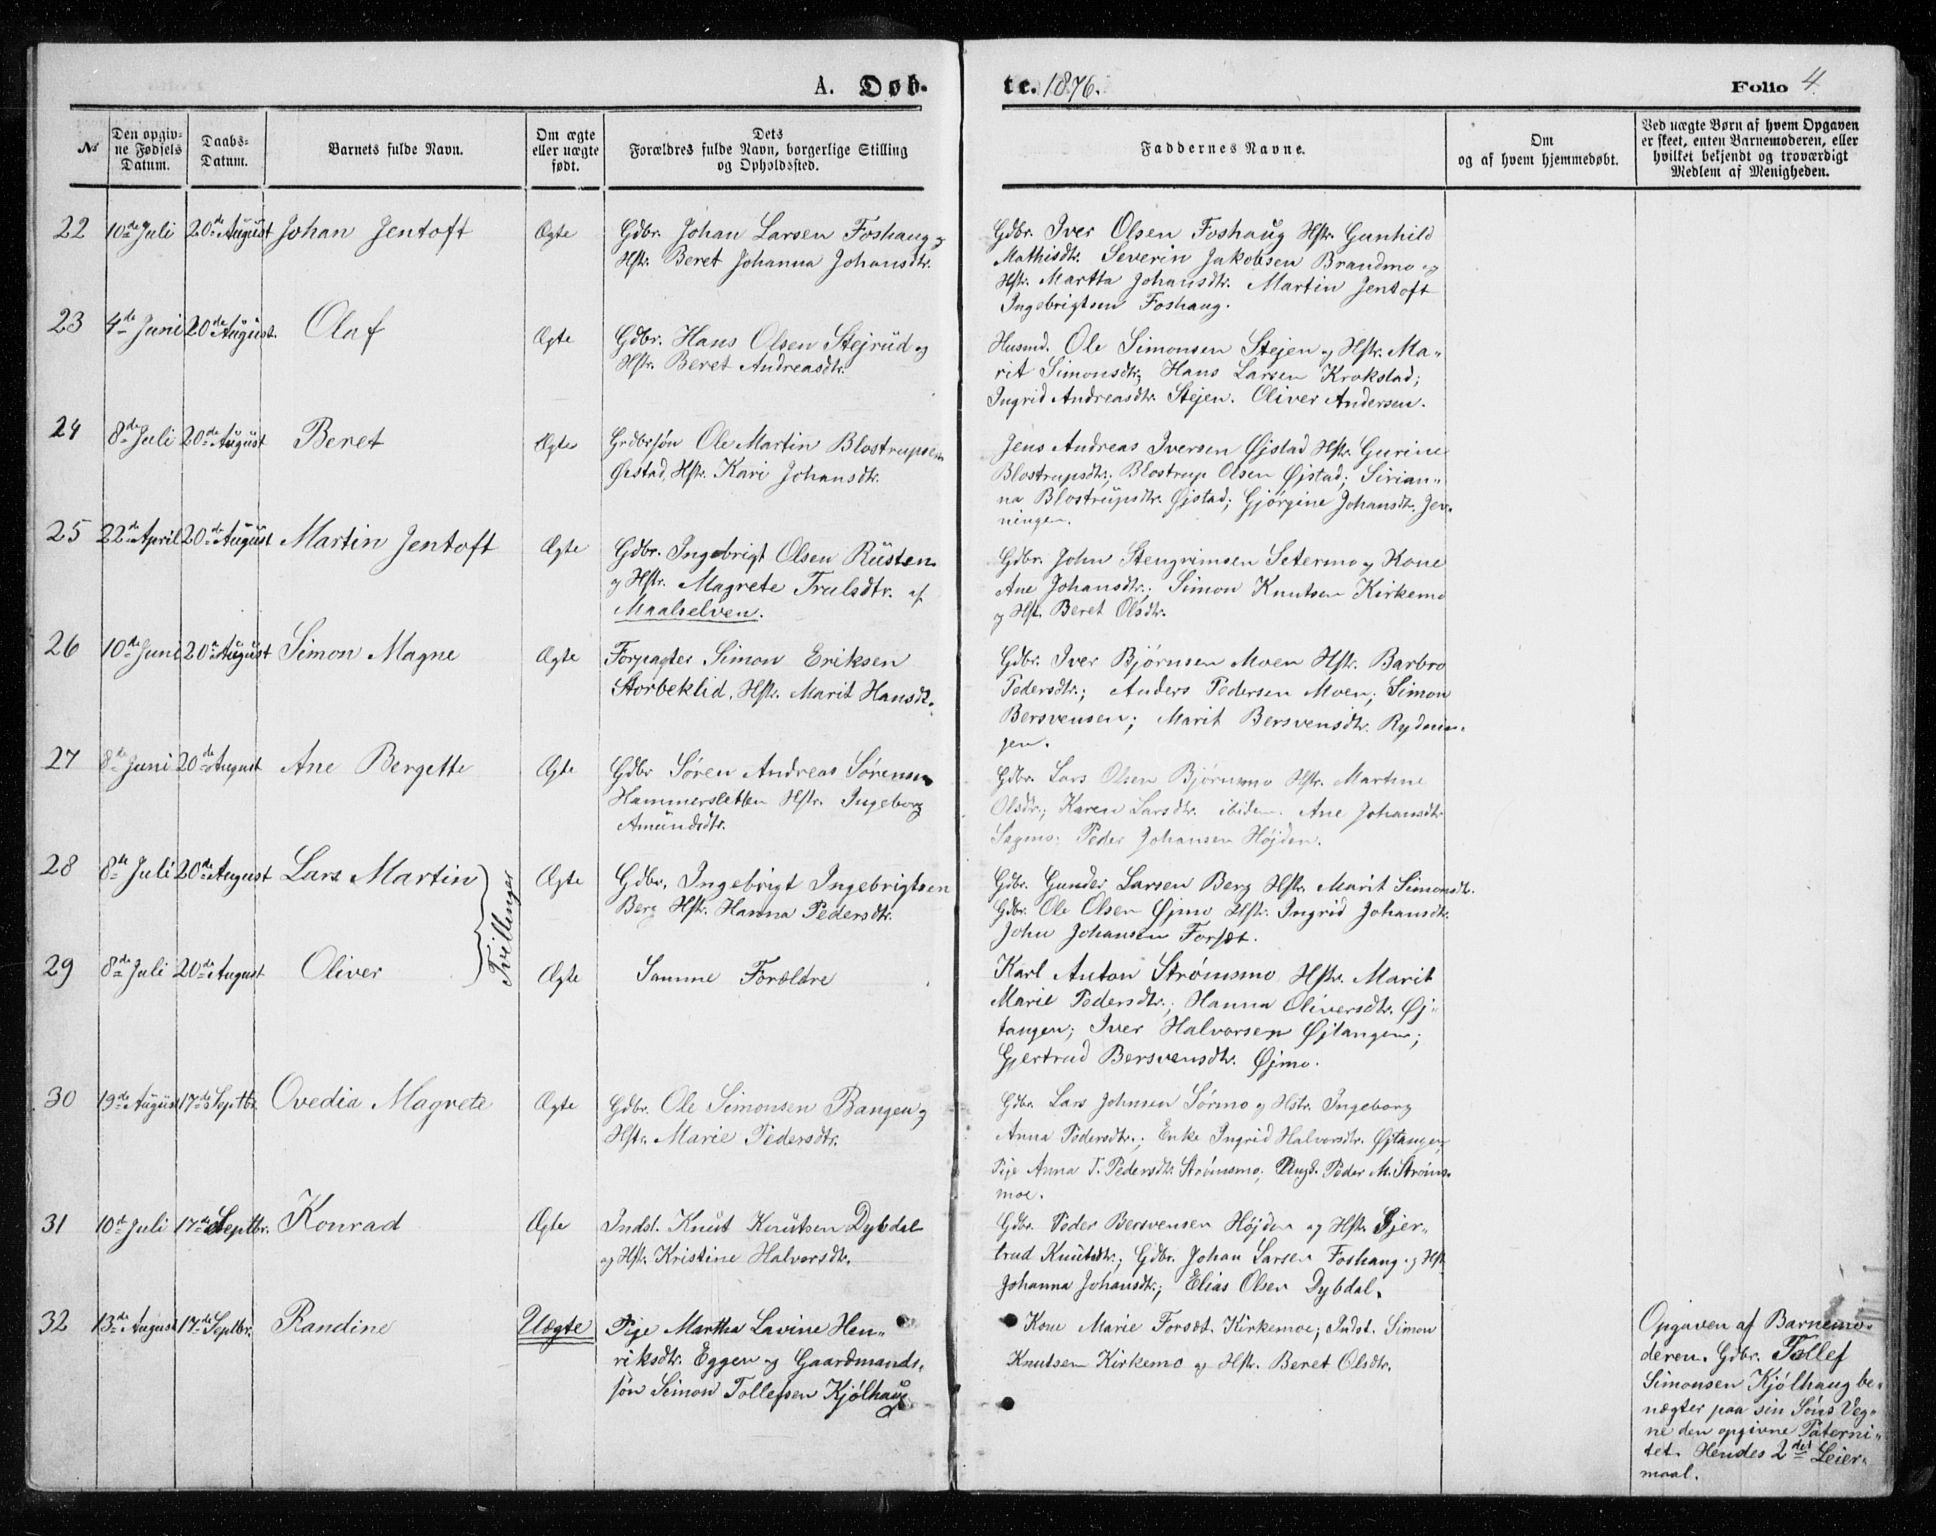 A. Døb-
te. 1876.
Folio 4
No
Den opgiv-
ne Fødsels
Datum.
Daabs-
Datum.
Barnets fulde Navn.
Om ægte
eller uægte
født.
Dets
Forældres fulde Navn, borgerlige Stilling
og Opholdssted.
Faddernes Navne.
Om
og af hvem hjemmedøbt.
Ved uægte Børn af hvem Opgaven
er skeet, enten Barnemoderen, eller
hvilket bekjendt og troværdigt
Medlem af Menigheden.
22 10de Juli 20de August Johan Jentoft Ægte
Gdbr. Johan Larsen Foshaug og
Hstr. Beret Johanna Johansdtr.
Gdbr. Iver Olsen Foshaug Hstr. Gunhild
Mathisdtr. Severin Jakobsen Brandmo og
Hstr. Martha Johansdtr. Martin Jentoft
Ingebrigtsen Foshaug.
23 4de Juni 20de August. Olaf Ægte
Gdbr. Hans Olsen Stejrud og
Hstr. Beret Andreasdtr.
Husmd. Ole Simonsen Stejen og Hstr. Ma-
rit Simonsdtr; Hans Larsen Krokstad;
Ingrid Andreasdtr. Stejen. Oliver Andersen.
24 8de Juli 20de August Beret Ægte
Grdbrsøn Ole Martin Blostrupsen
Øistad, Hstr. Kari Johansdtr.
Jens Andreas Iversen Øjstad Hstr. Gurine
Blostrupsdtr.; Blostrup Olsen Øjstad; Sirian-
na Blostrupsdtr. Øjstad; Gjørgine Johansdtr. Jer-
ningen.
25 22de April 20de August Martin Jentoft Ægte
Gdbr. Ingebrigt Olsen Rüsten
og Hstr. Magrete Trulsdtr. af
Maalselven.
Gdbr. John Stengrimsen Setermo og Kone
Ane Johansdtr.; Simon Knutsen Kirkemo
og Hst. Beret Olsdtr.
26 10de Juni 20de August Simon Magne Ægte
Forpagter Simon Eriksen
Storbeklid, Hstr. Marit Hansdt.
Gdbr. Iver Bjørnsen Moen Hstr. Barbro
Pedersdtr.; Anders Pedersen Moen; Simon
Bersvensen; Marit Bersvensdtr. Rydnin-
gen.
27 8de Juni 20de August Ane Bergette Ægte
Gdbr Søren Andreas Sørensen
Hammersletten Hstr. Ingeborg
Amundsdtr.
Gdbr. Lars Olsen Bjørnmo Hstr. Martine
Olsdtr.; Karen Larsdtr. ibiden. Ane Johansdtr
Sagmo. Peder Johansen Højden.
28 8de Juli 20de August Lars Martin Ægte
Tvillinger
Gdbr. Ingebrigt Ingebrigtsen
Berg Hstr. Hanna Pedersdtr.
Gdbr. Gunder Larsen Berg Hstr. Marit Simonsdt.
Gdbr. Ole Olsen Øjmo Hstr. Ingrid Johansdtr.
John Johansen Forsæt.
29 8de Juli 20de August Oliver Ægte
Samme Forældre
Karl Anton Strømsmo Hstr. Marit
Marie Pedersdtr.; Hanna Oliversdtr. Øj-
tangen; Iver Halvorsen Øjtangen;
Gjertrud Bersvensdtr. Øjmo.
30 19de August 17de Septbr. Ovedia Magrete Ægte
Gdbr. Ole Simonsen Bangen og
Hstr. Marie Pedersdtr.
Gdbr. Lars Johnsen Sørmo og Hstr. Ingeborg
Anna Pedersdtr.; Enke Ingrid Halvorsdtr. Øjtangen,
Pige Anna T. Pedersdtr Strømsmo; Ungd. Peder M. Strøms-
moe.
31 10de Juli 17de Septbr. Konrad Ægte
Indst. Knut Knutsen Dybdal
og Hstr. Kristine Halvorsdtr.
Gdbr. Peder Bersvensen Højden og Hstr. Gjer-
trud Knutsdtr.; Gdbr. Johan Larsen Foshaug og Hst
Johanna Johansdtr.; Elias Olsen Dybdal.
32 13de August 17de Septbr. Randine Uægte
Pige Martha Lavine Hen-
riksdtr. Eggen og Gaardmands-
søn Simon Tollefsen Kjølhaug
Kone Marie Forsæt Kirkemoe; Indst. Simon
Knutsen Kirkemo og Hstr. Beret Olsdtr.
Opgaven af Barnemo-
deren. Gdbr. Tollef
Simonsen Kjølhaug be-
nægter paa sin Søns Veg-
ne den opgivne Paterni-
tet. Hendes 2det Leier-
maal.